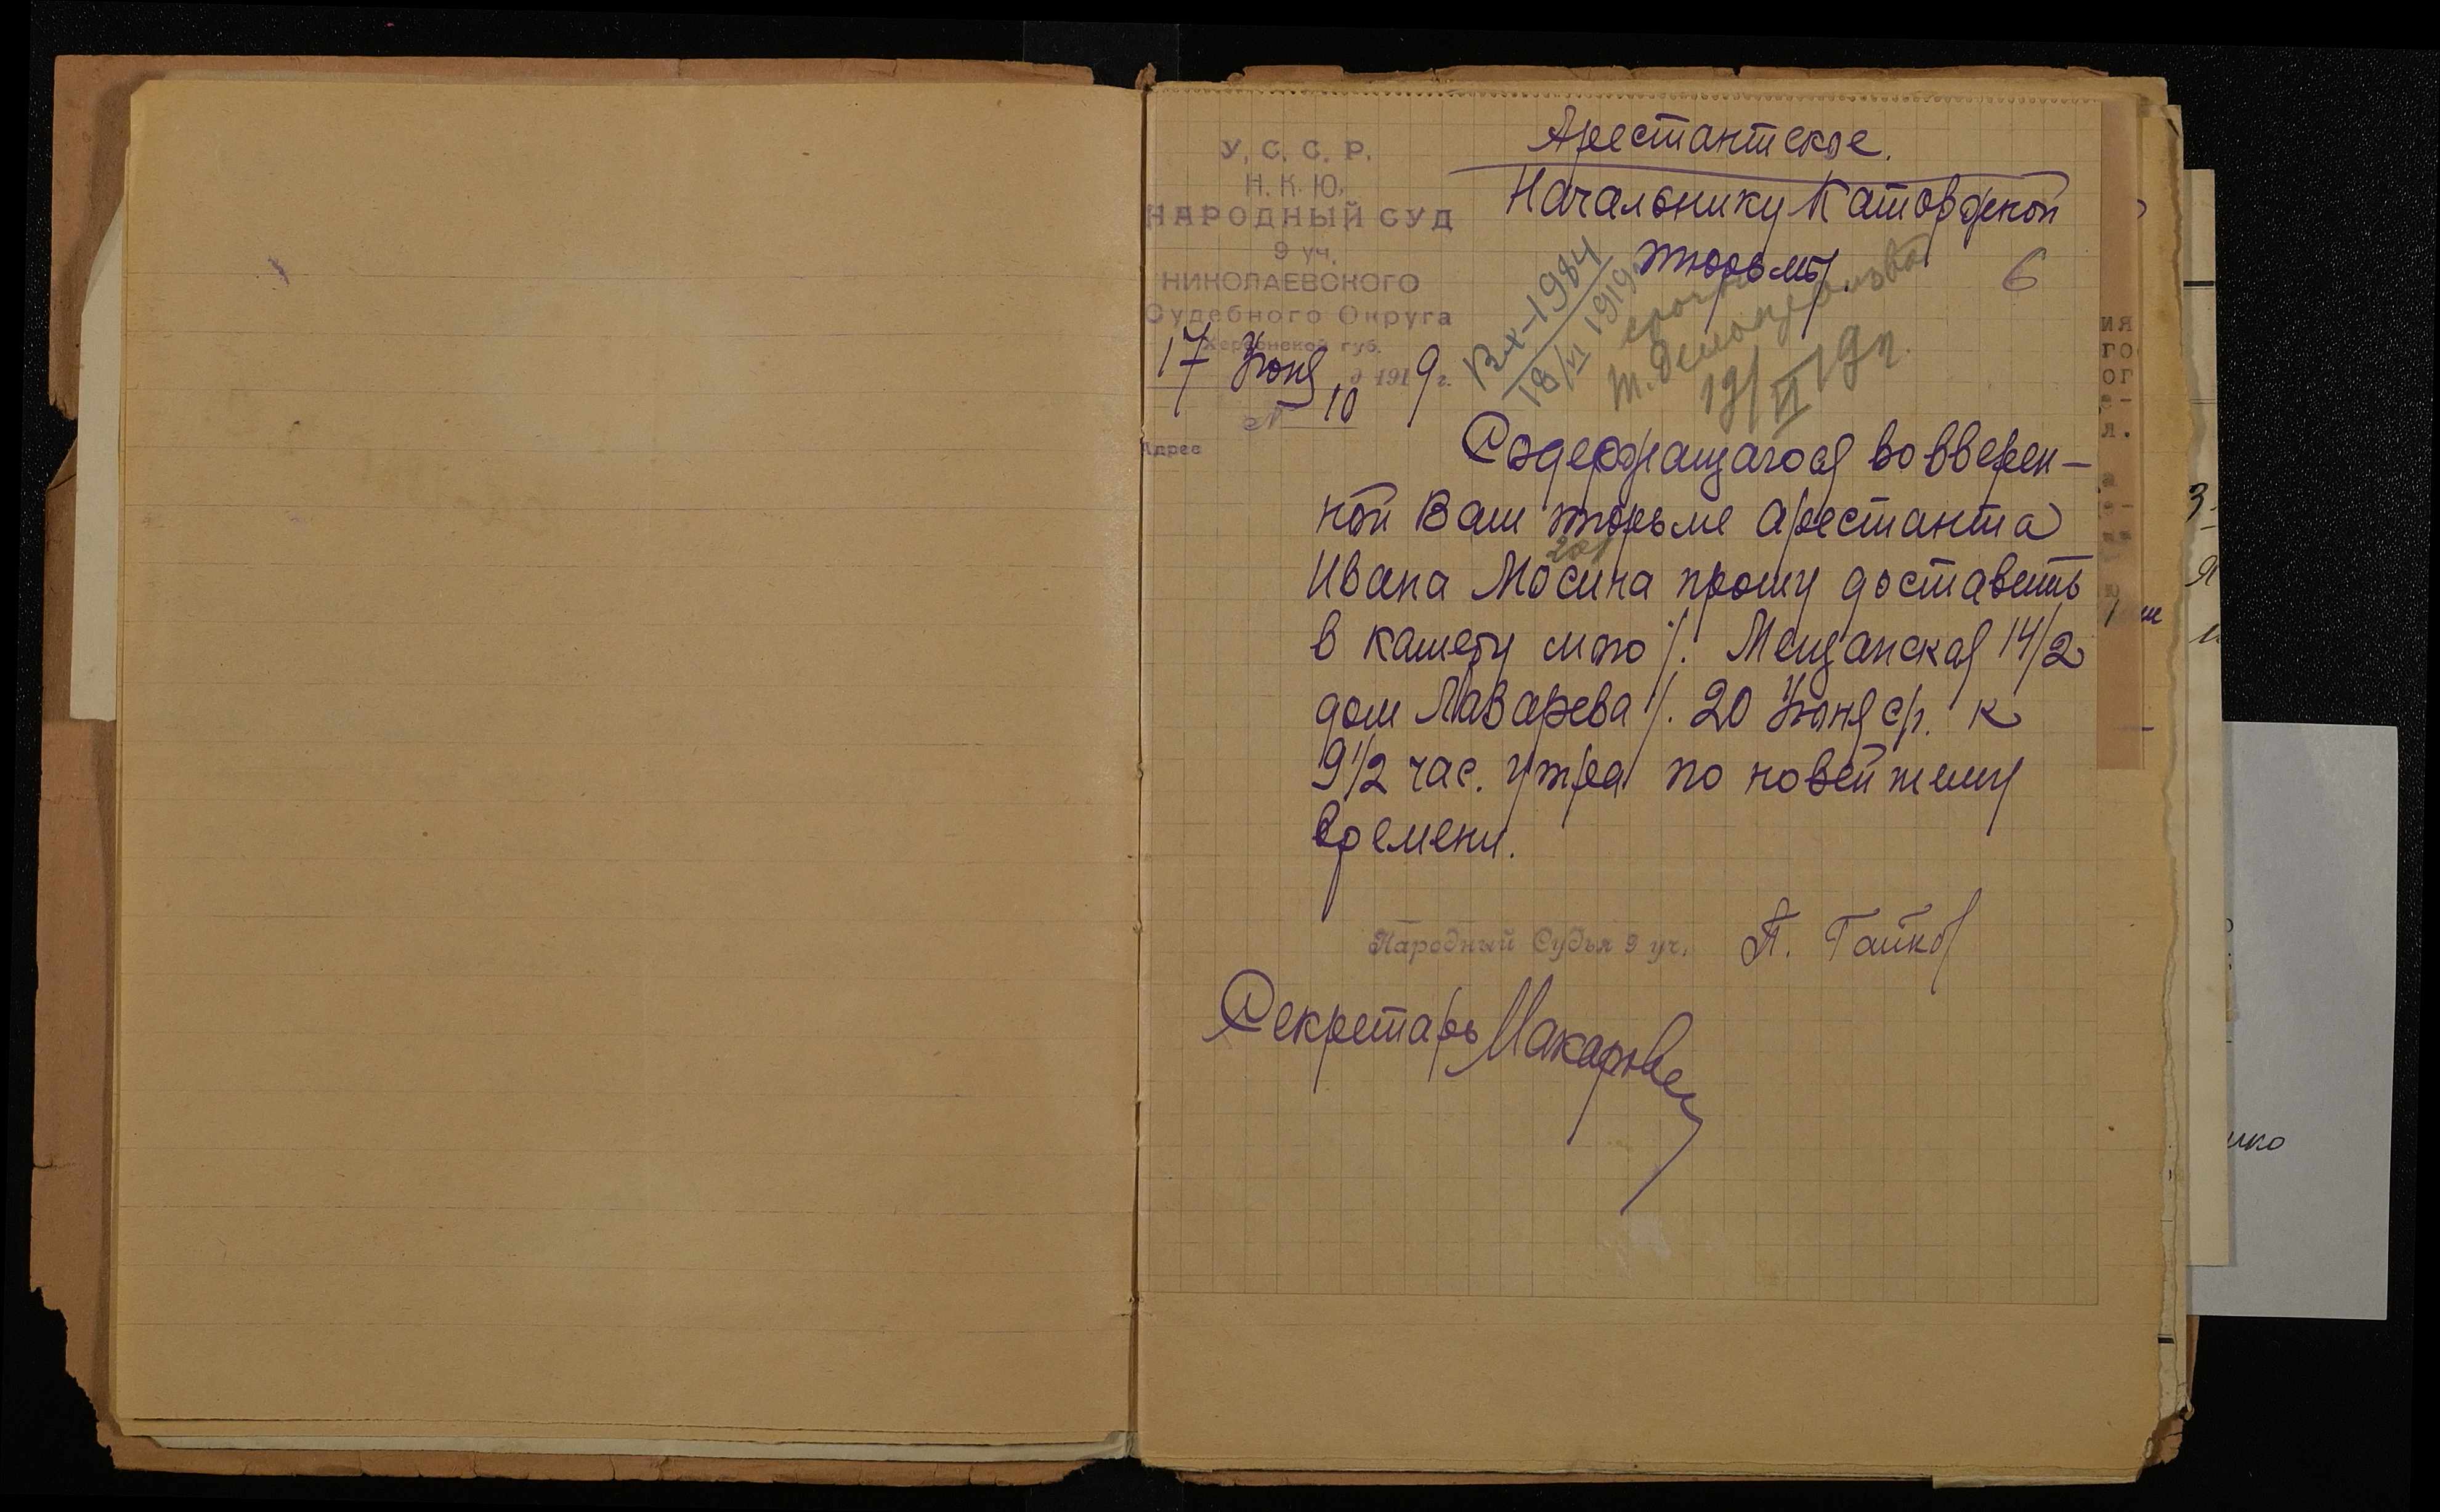 Арестантское.
У. С. С. Р.
Н. К. Ю.
НАРОДНЫЙ СУД
9 уч.
НИКОЛАЕВСКОГО
Судебного Округа
Херсонской губ.
17 Июня 1919 г.
№ 10
Адрес
Начальнику Каторжной
тюрьмы.
6
Вх-1984
18/VI 1919
срочно
19/VI 19 г.
Содержащагося во вверен-
ной Вам тюрьме арестанта
Ивана Мосина прошу доставить
в камеру мою /. Мещанская 14/2
дом Лазарева /. 20 Июня с/г. к
9 1/2 час. утра по новейшему
времени.
Народный Судья 9 уч. П. Гайков
Секретарь